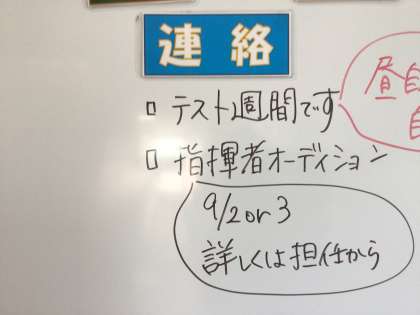 連絡
テスト週間です
昼自
自
指揮者オーディション
9/2 or 3
詳しくは担任から